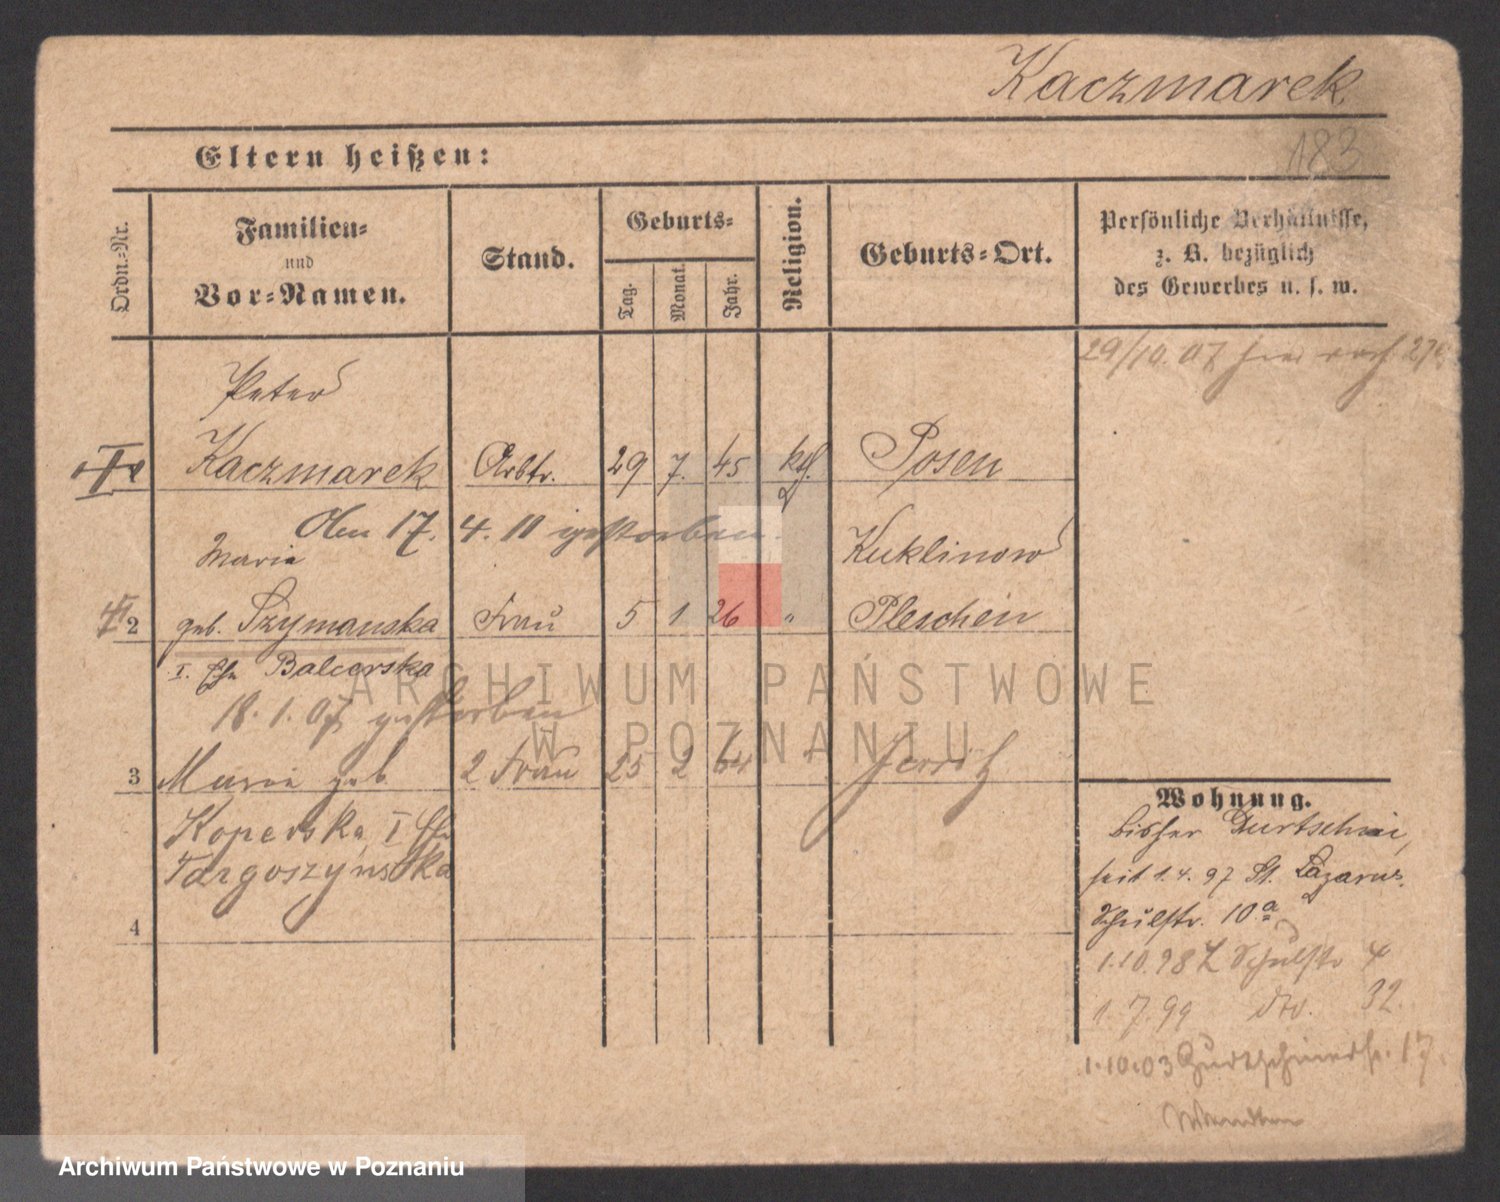 Kaczmarek
183
Eltern heißen:
Ordn.-Nr.
Familien-
und
Vor-Namen.
Stand.
Geburts-
Tag.
Monat.
Jahr.
Religion.
Geburts-Ort.
Persönliche Verhältnisse,
z. B. bezüglich
des Gewerbes u. s. w.
29/10.07
Peter
Kaczmarek Arbtr. 29 7. 45 kth. Posen
Am 17. 4. 11 gestorben.
Maria Kuklinow
2 geb. Szymanska Frau 5 1 26 " Pleschen
I. Ehe Balcerska
18.1.07 gestorben
3 Maria geb. 2 Frau 25 2 64 " Jersitz
Koperska, I Ehe
Targoszyńska
4
Wohnung.
bisher Gurtschin,
seit 1.4.97 St. Lazarus.
Schulstr. 10a
1.10.98 Schulstr 4
1.7.99 dto. 32.
1.10.03 Gurtschinerstr. 17.
ARCHIWUM PAŃSTWOWE
W POZNANIU
Archiwum Państwowe w Poznaniu